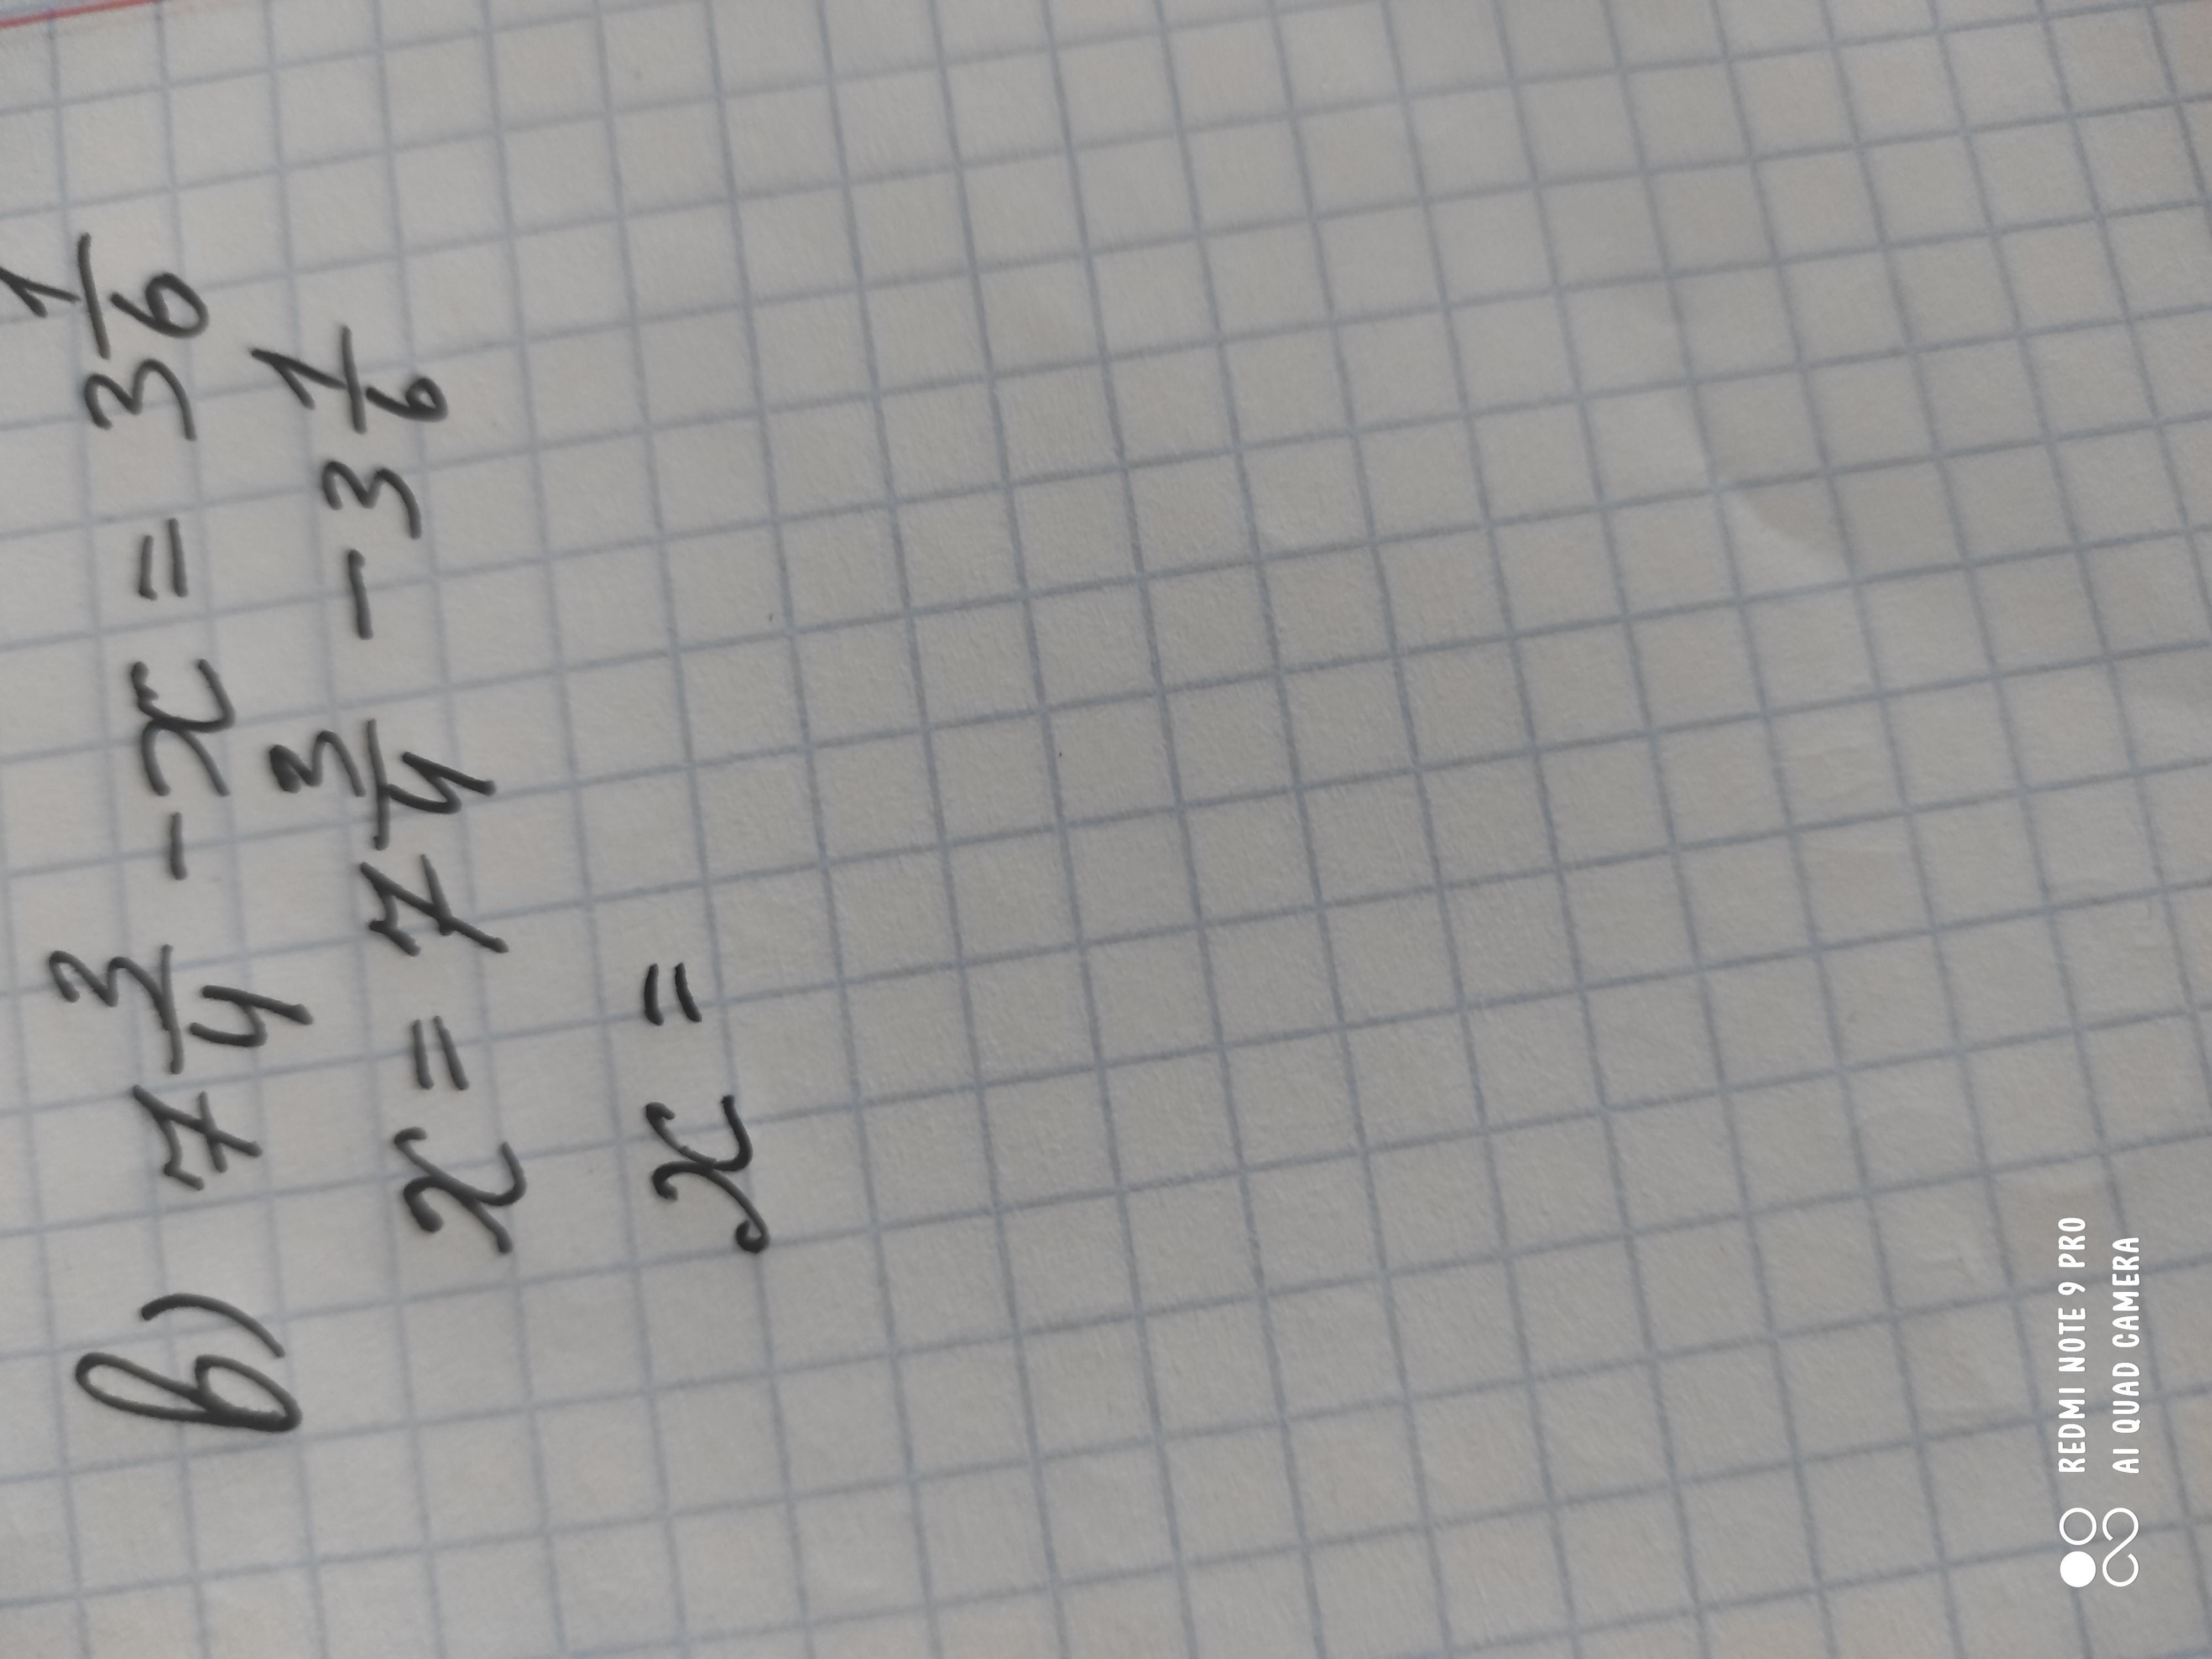 в) 7 3/4 - x = 3 1/6
x = 7 3/4 - 3 1/6
x =
REDMI NOTE 9 PRO
AI QUAD CAMERA